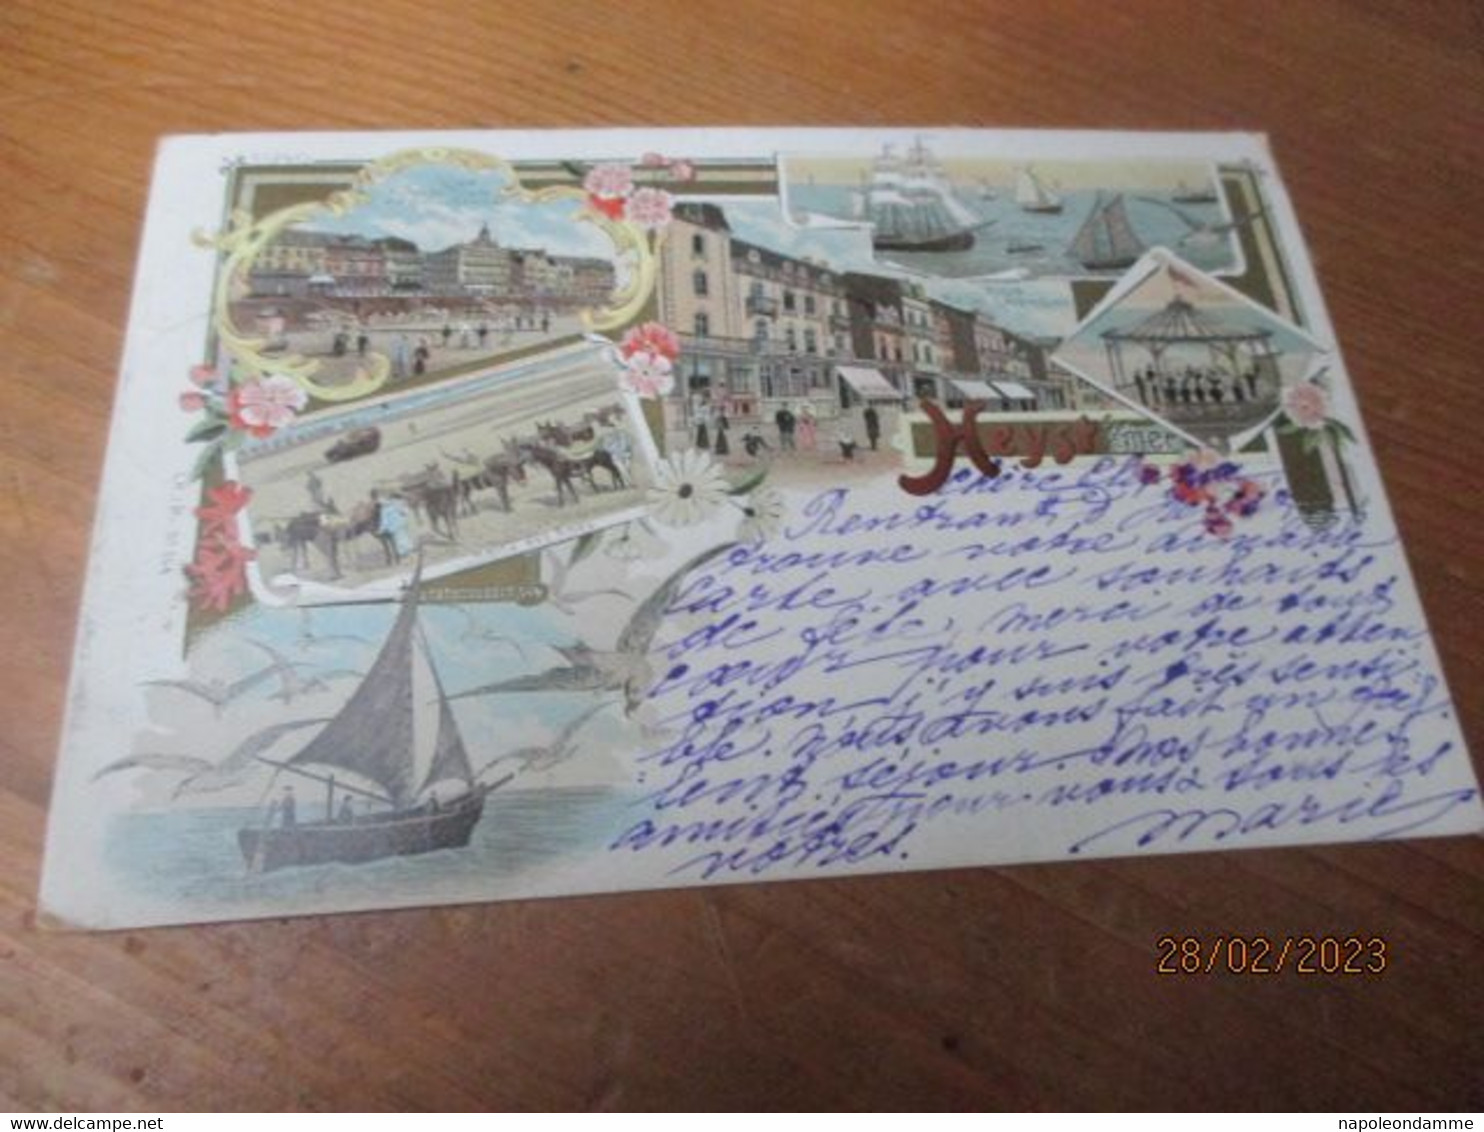 Heyst s/mer
Chère
Rentrant, d
trouve votre aimable
carte avec souhaits
de fête, merci de tout
coeur pour votre atten
tion j'y suis très sensi-
ble. Nous avons fait un
lent séjour. Nos bonnes
amitiés pour vous & tous les
vôtres. Marie
28/02/2023
napoleondamme